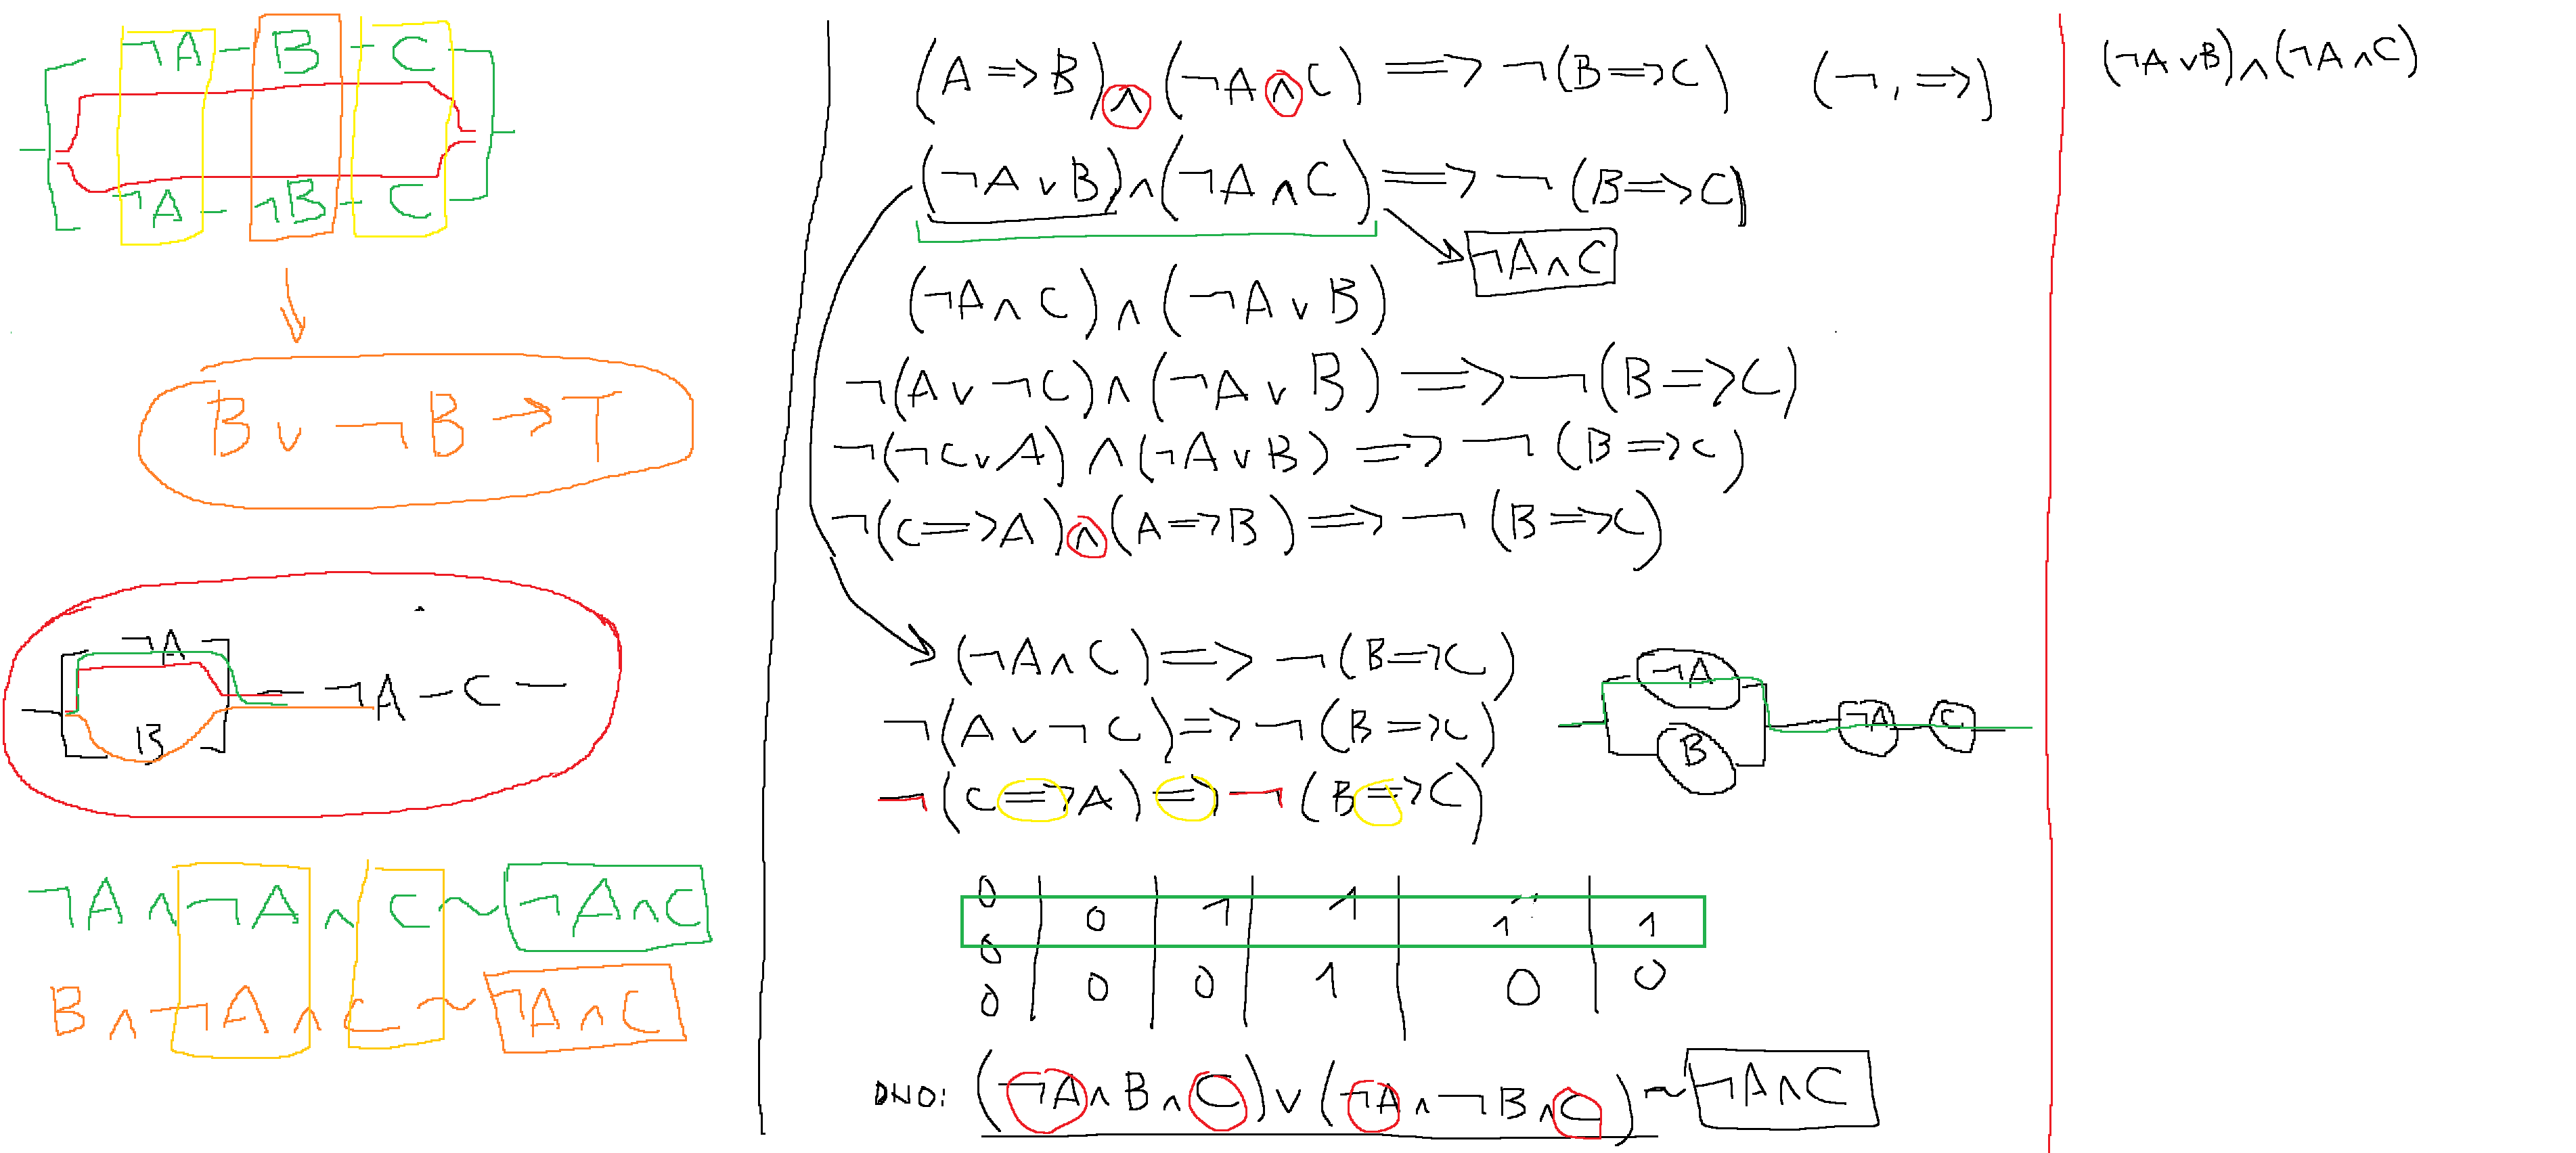 ¬A – B – C
¬A – ¬B – C
B ∨ ¬B → T
¬A
B
¬A – C –
¬A ∧ ¬A ∧ C ~ ¬A ∧ C
B ∧ ¬A ∧ C ~ ¬A ∧ C
(A => B) ∧ (¬A ∧ C) => ¬(B => C) (¬, =>)
(¬A ∨ B) ∧ (¬A ∧ C) => ¬(B => C)
¬A ∧ C
(¬A ∧ C) ∧ (¬A ∨ B)
¬(A ∨ ¬C) ∧ (¬A ∨ B) => ¬(B => C)
¬(¬C ∨ A) ∧ (¬A ∨ B) => ¬(B => C)
¬(C => A) ∧ (A => B) => ¬(B => C)
(¬A ∧ C) => ¬(B => C)
¬(A ∨ ¬C) => ¬(B => C)
¬(C => A) => ¬(B => C)
¬A
B
¬A C
0
0 1 1 1 1
0
0 0 0 1 0 0
DNO: (¬A ∧ B ∧ C) ∨ (¬A ∧ ¬B ∧ C) ~ ¬A ∧ C
(¬A ∨ B) ∧ (¬A ∧ C)